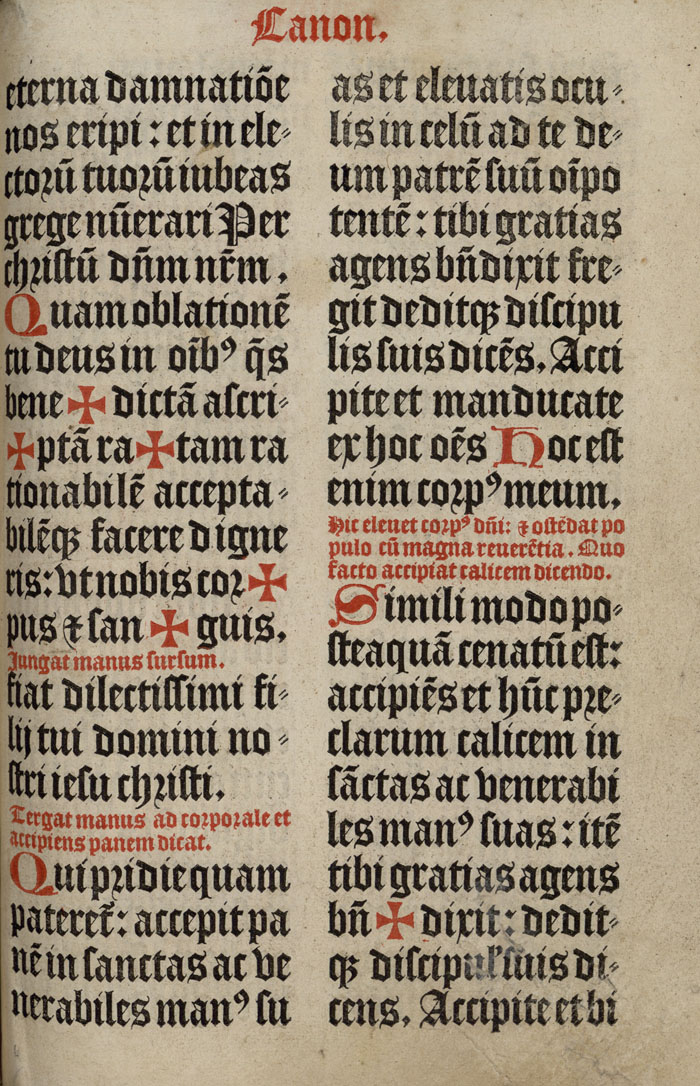 Canon.
eterna damnatiõe
nos eripi : et in ele⸗
ctorũ tuorũ iubeas
grege nũerari Per
christũ dñm nr̃m .
Quam oblationẽ
tu deus in oĩbꝰ q̃s
bene ✠ dictã ascri⸗
✠ ptã ra ✠ tam ra
tionabilẽ accepta⸗
bilẽqꝫ facere digne
ris : vt nobis cor ✠
pus ⁊ san ✠ guis .
Jungat manus sursum .
fiat dilectissimi fi⸗
lij tui domini no⸗
stri iesu christi .
Tergat manus ad corporale et
accipiens panem dicat .
Qui pridie quam
pateret᷑ : accepit pa
nẽ in sanctas ac ve
nerabiles manꝰ su
as et eleuatis ocu⸗
lis in celũ ad te de⸗
um patrẽ suũ oĩpo
tentẽ : tibi gratias
agens bñdixit fre⸗
git deditqꝫ discipu
lis suis dicẽs . Acci
pite et manducate
ex hoc oẽs Hoc est
enim corpꝰ meum .
Hic eleuet corpꝰ dñi : ⁊ ostẽdat po
pulo cũ magna reuerẽtia . Quo
facto accipiat calicem dicendo .
Simili modo po⸗
steaquã cenatũ est :
accipiẽs et hũc pre⸗
clarum calicem in
sãctas ac venerabi
les manꝰ suas : itẽ
tibi gratias agens
bñ ✠ dixit : dedit⸗
qꝫ discipul' suis di⸗
cens . Accipite et bi